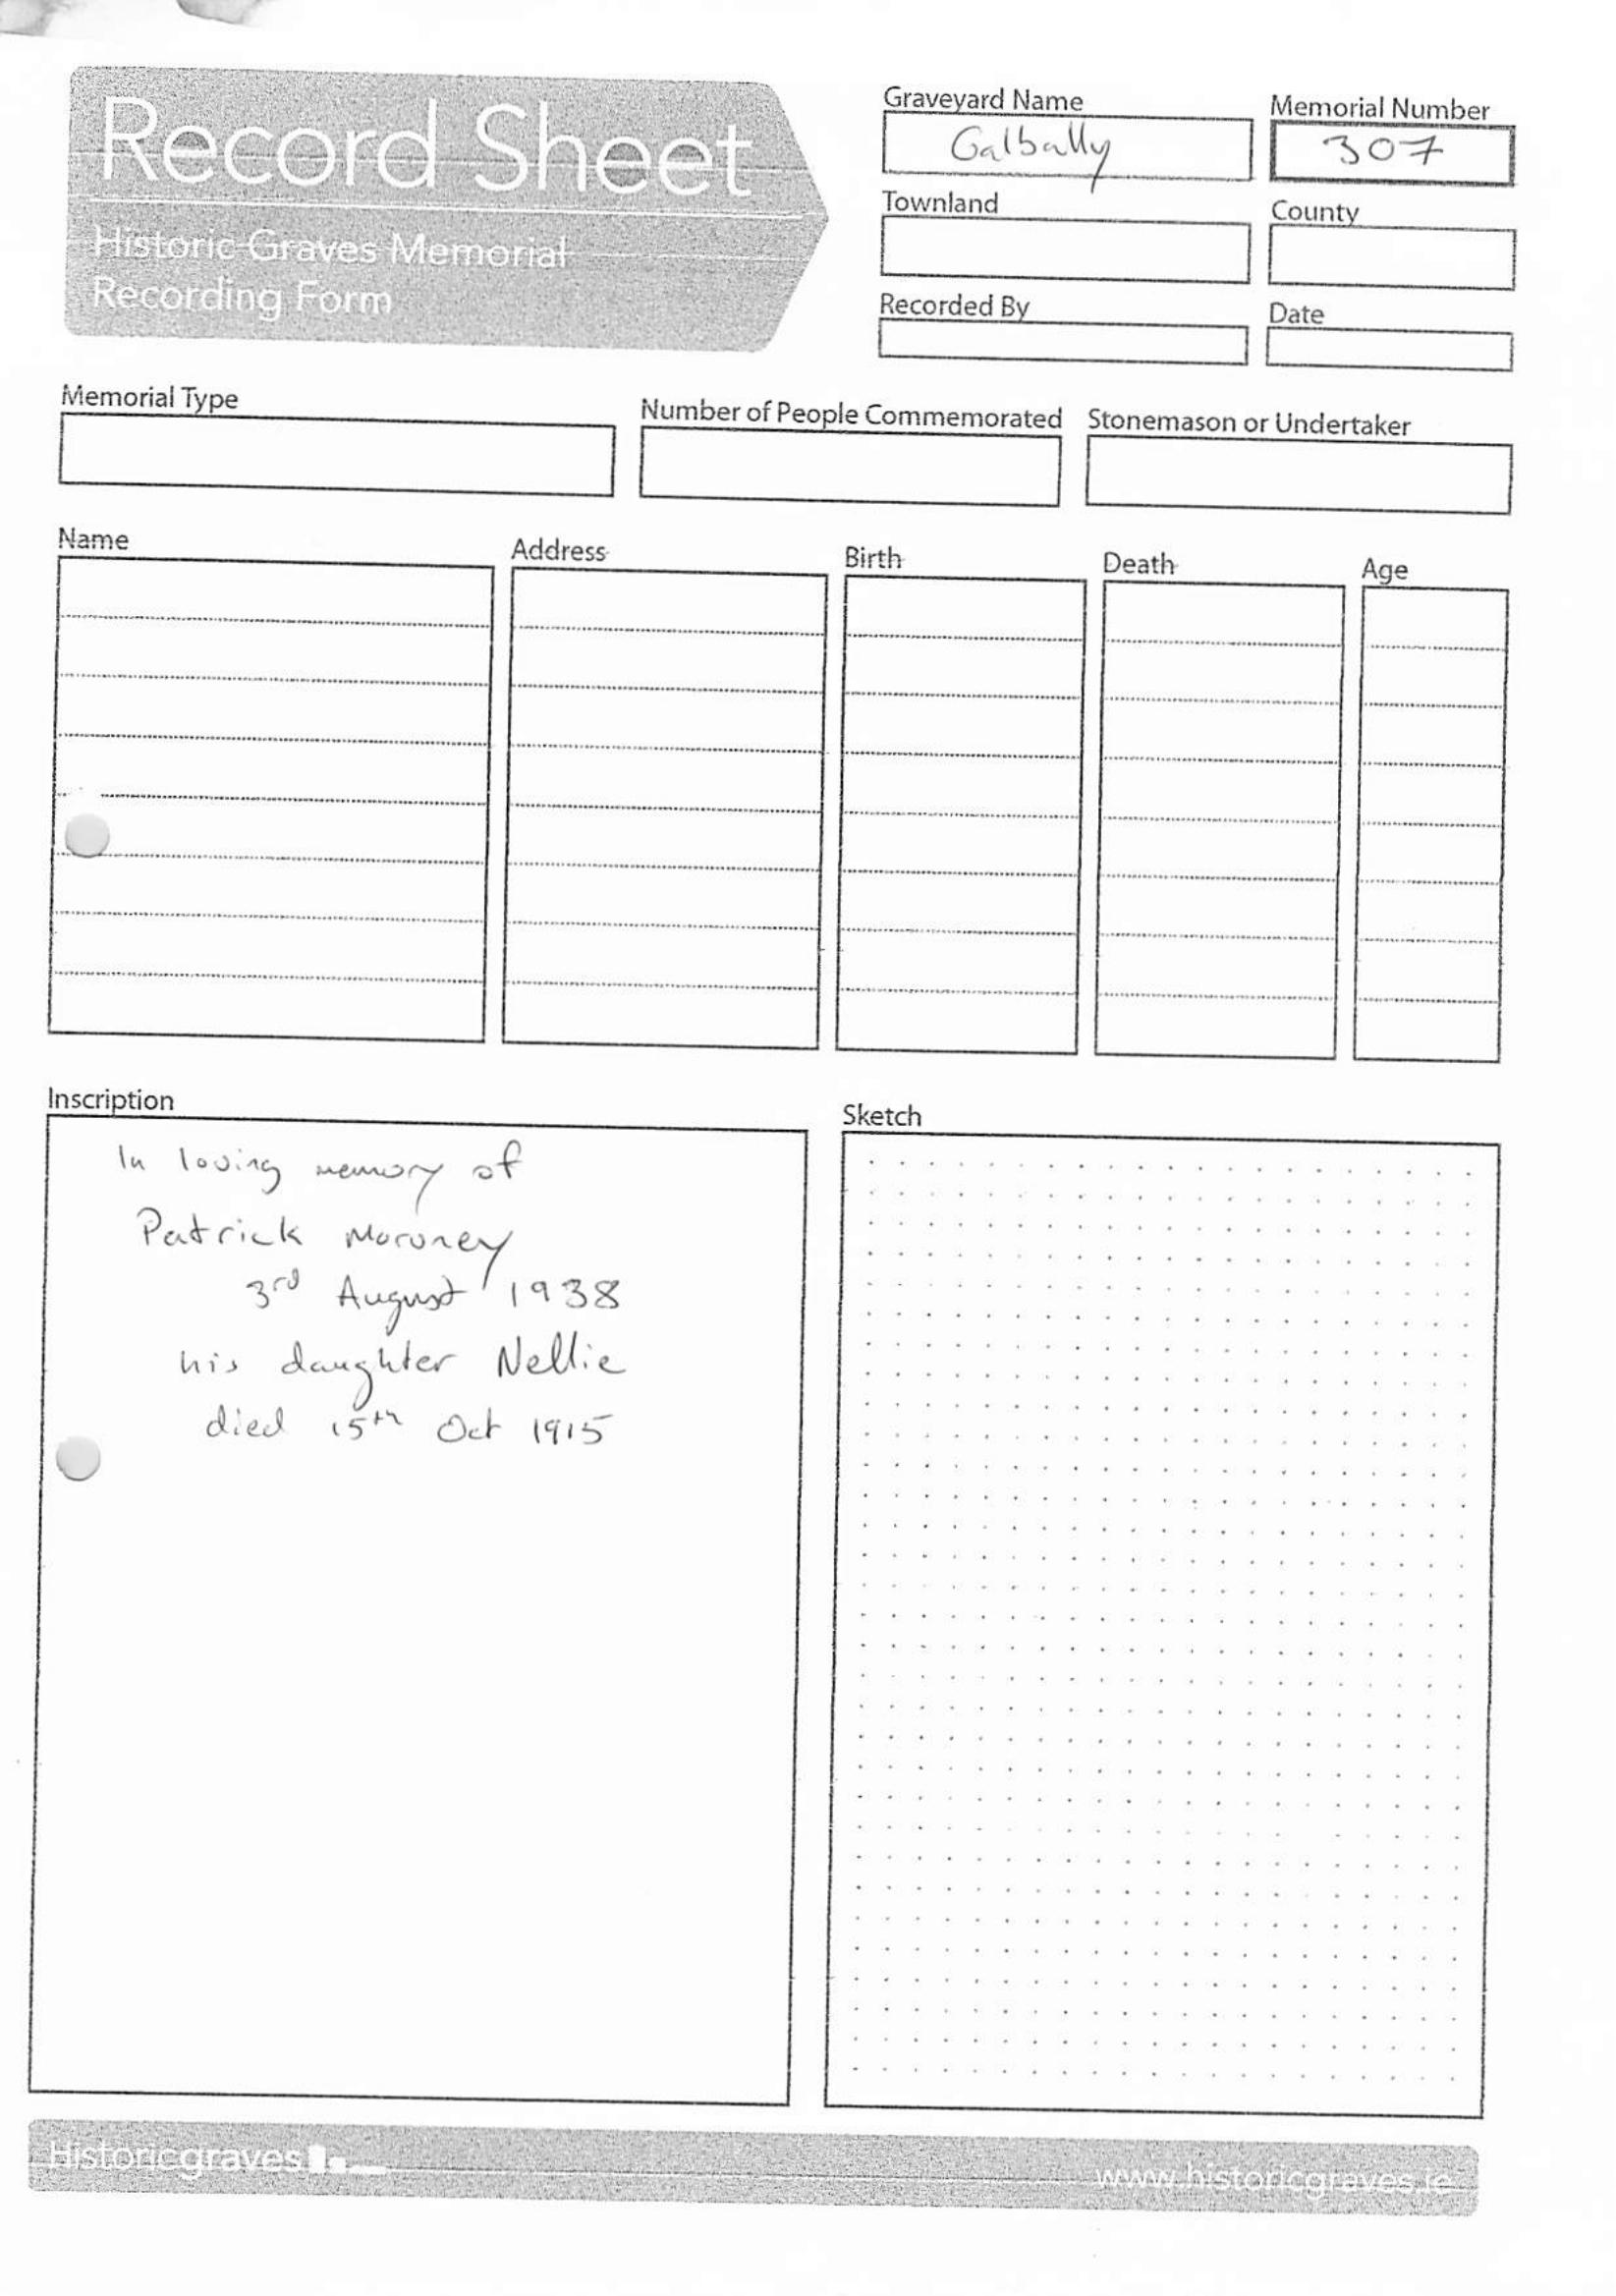 Record Sheet
Historic Graves Memorial
Recording Form
Graveyard Name
Galbally
Memorial Number
307
Townland
County
Recorded By
Date
Memorial Type
Number of People Commemorated
Stonemason or Undertaker
Name
Address
Birth
Death
Age
Inscription
In loving memory of
Patrick Moroney
3rd August 1938
his daughter Nellie
died 15th Oct 1915
Sketch
Historicgraves
www.historicgraves.ie